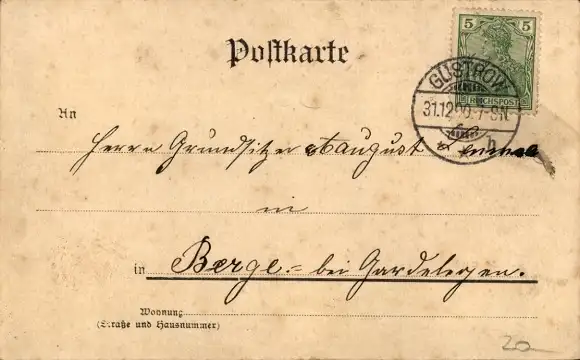 5
Postkarte
REICHSPOST
GÜSTROW
31.12.00.7-8N.
An
Herrn Grundsitzer August
in
in Berge bei Gardelegen.
Wohnung
(Straße und Hausnummer)
20